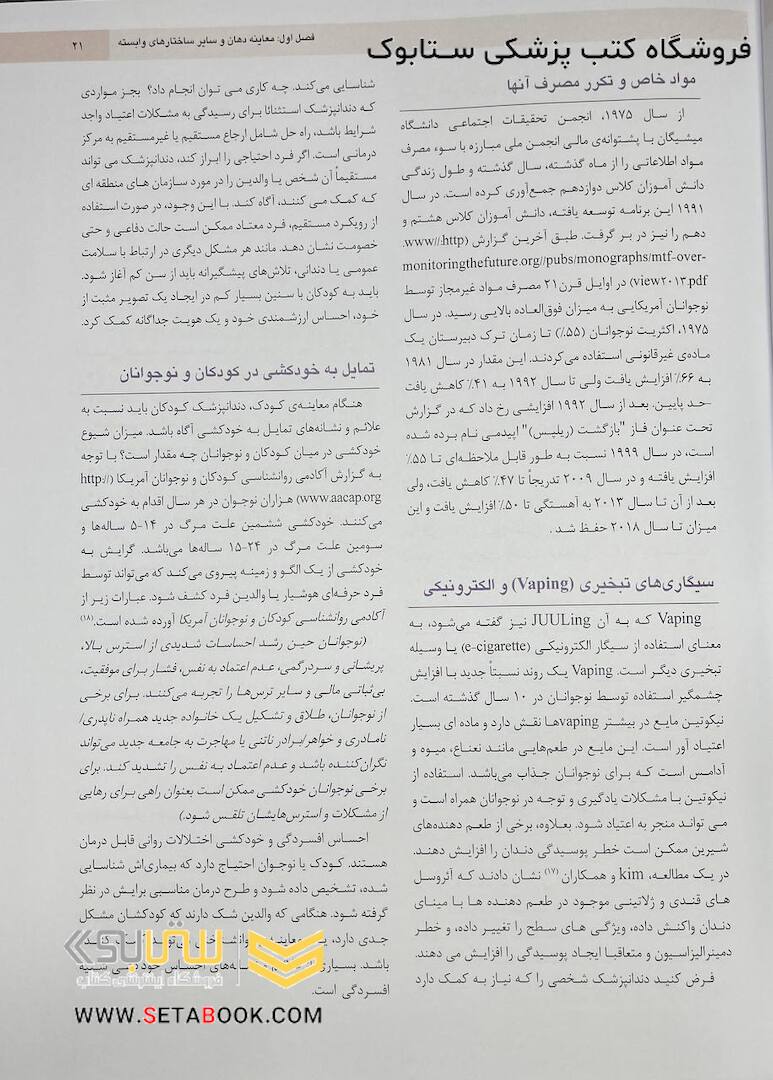 فروشگاه کتب پزشکی ستابوک
فصل اول: معاینه دهان و سایر ساختارهای وابسته
۲۱
مواد خاص و تکرر مصرف آنها
از سال ۱۹۷۵، انجمن تحقیقات اجتماعی دانشگاه
میشیگان با پشتوانه‌ی مالی انجمن ملی مبارزه با سوء مصرف
مواد اطلاعاتی را از ماه گذشته، سال گذشته و طول زندگی
دانش آموزان کلاس دوازدهم جمع‌آوری کرده است. در سال
۱۹۹۱ این برنامه توسعه یافته، دانش آموزان کلاس هشتم و
دهم را نیز در بر گرفت. طبق آخرین گزارش (http://www.
monitoringthefuture.org//pubs/monographs/mtf-over-
view۲۰۱۳.pdf) در اوایل قرن۲۱ مصرف مواد غیرمجاز توسط
نوجوانان آمریکایی به میزان فوق‌العاده بالایی رسید. در سال
۱۹۷۵، اکثریت نوجوانان (۵۵٪) تا زمان ترک دبیرستان یک
ماده‌ی غیرقانونی استفاده می‌کردند. این مقدار در سال ۱۹۸۱
به ۶۶٪ افزایش یافت ولی تا سال ۱۹۹۲ به ۴۱٪ کاهش یافت
-حد پایین. بعد از سال ۱۹۹۲ افزایشی رخ داد که در گزارش
تحت عنوان فاز "بازگشت (ریلپس)" اپیدمی نام برده شده
است، در سال ۱۹۹۹ نسبت به طور قابل ملاحظه‌ای تا ۵۵٪
افزایش یافته و در سال ۲۰۰۹ تدریجاً تا ۴۷٪ کاهش یافت، ولی
بعد از آن تا سال ۲۰۱۳ به آهستگی تا ۵۰٪ افزایش یافت و این
میزان تا سال ۲۰۱۸ حفظ شد .
سیگاری‌های تبخیری (Vaping) و الکترونیکی
Vaping که به آن JUULing نیز گفته می‌شود، به
معنای استفاده از سیگار الکترونیکی (e-cigarette) یا وسیله
تبخیری دیگر است. Vaping یک روند نسبتاً جدید با افزایش
چشمگیر استفاده توسط نوجوانان در ۱۰ سال گذشته است.
نیکوتین مایع در بیشتر vapingها نقش دارد و ماده ای بسیار
اعتیاد آور است. این مایع در طعم‌هایی مانند نعناع، میوه و
آدامس است که برای نوجوانان جذاب می‌باشد. استفاده از
نیکوتین با مشکلات یادگیری و توجه در نوجوانان همراه است و
می تواند منجر به اعتیاد شود. بعلاوه، برخی از طعم دهنده‌های
شیرین ممکن است خطر پوسیدگی دندان را افزایش دهند.
در یک مطالعه، kim و همکاران (۱۷) نشان دادند که آئروسل
های قندی و ژلاتینی موجود در طعم دهنده ها با مینای
دندان واکنش داده، ویژگی های سطح را تغییر داده، و خطر
دمینرالیزاسیون و متعاقبا ایجاد پوسیدگی را افزایش می دهند.
فرض کنید دندانپزشک شخصی را که نیاز به کمک دارد
شناسایی می‌کند. چه کاری می توان انجام داد؟ بجز مواردی
که دندانپزشک استثنائا برای رسیدگی به مشکلات اعتیاد واجد
شرایط باشد، راه حل شامل ارجاع مستقیم یا غیرمستقیم به مرکز
درمانی است. اگر فرد احتیاجی را ابراز کند، دندانپزشک می تواند
مستقیماً آن شخص یا والدین را در مورد سازمان های منطقه ای
که کمک می کنند، آگاه کند. با این وجود، در صورت استفاده
از رویکرد مستقیم، فرد معتاد ممکن است حالت دفاعی و حتی
خصومت نشان دهد. مانند هر مشکل دیگری در ارتباط با سلامت
عمومی یا دندانی، تلاش‌های پیشگیرانه باید از سن کم آغاز شود.
باید به کودکان با سنین بسیار کم در ایجاد یک تصویر مثبت از
خود، احساس ارزشمندی خود و یک هویت جداگانه کمک کرد.
تمایل به خودکشی در کودکان و نوجوانان
هنگام معاینه‌ی کودک، دندانپزشک کودکان باید نسبت به
علائم و نشانه‌های تمایل به خودکشی آگاه باشد. میزان شیوع
خودکشی در میان کودکان و نوجوانان چه مقدار است؟ با توجه
به گزارش آکادمی روانشناسی کودکان و نوجوانان آمریکا (http://
www.aacap.org) هزاران نوجوان در هر سال اقدام به خودکشی
می‌کنند. خودکشی ششمین علت مرگ در ۱۴-۵ ساله‌ها و
سومین علت مرگ در ۲۴-۱۵ ساله‌ها می‌باشد. گرایش به
خودکشی از یک الگو و زمینه پیروی می‌کند که می‌تواند توسط
فرد حرفه‌ای هوشیار یا والدین فرد کشف شود. عبارات زیر از
آکادمی روانشناسی کودکان و نوجوانان آمریکا آورده شده است.(۱۸)
(نوجوانان حین رشد احساسات شدیدی از استرس بالا،
پریشانی و سردرگمی، عدم اعتماد به نفس، فشار برای موفقیت،
بی‌ثباتی مالی و سایر ترس‌ها را تجربه می‌کنند. برای برخی
از نوجوانان، طلاق و تشکیل یک خانواده جدید همراه ناپدری/
نامادری و خواهر/برادر ناتنی یا مهاجرت به جامعه جدید می‌تواند
نگران‌کننده باشد و عدم اعتماد به نفس را تشدید کند. برای
برخی نوجوانان خودکشی ممکن است بعنوان راهی برای رهایی
از مشکلات و استرس‌هایشان تلقس شود.)
احساس افسردگی و خودکشی اختلالات روانی قابل درمان
هستند. کودک یا نوجوان احتیاج دارد که بیماری‌اش شناسایی
شده، تشخیص داده شود و طرح درمان مناسبی برایش در نظر
گرفته شود. هنگامی که والدین شک دارند که کودکشان مشکل
جدی دارد، یک معاینه
باشد. بسیاری
افسردگی است.
ستابوک
فروشگاه اینترنتی کتاب
WWW.SETABOOK.COM